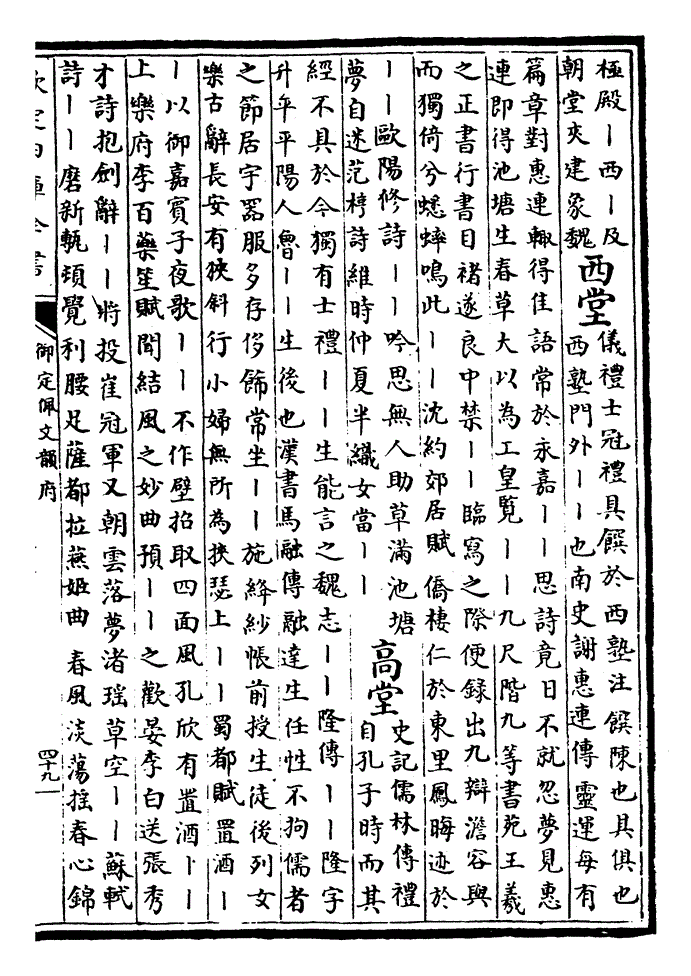 極殿丨西丨及
朝堂夾建象魏
西堂
儀禮士冠禮具饌於西塾注饌陳也具俱也
西塾門外丨丨也南史謝惠連傳靈運每有
篇章對惠連輙得佳語常於永嘉丨丨思詩竟日不就忽夢見惠
連即得池塘生春草大以為工皇覧丨丨九尺階九等書苑王羲
之正書行書目褚遂良中禁丨丨臨寫之際便録出九辯澹容與
而獨倚兮蟋蟀鳴此丨丨沈約郊居賦僑棲仁於東里鳳晦迹於
丨丨歐陽修詩丨丨吟思無人助草滿池塘
夢自迷范梈詩維時仲夏半織女當丨丨
高堂
史記儒林傳禮
自孔子時而其
經不具於今獨有士禮丨丨生能言之魏志丨丨隆傳丨丨隆字
升平平陽人魯丨丨生後也漢書馬融傳融達生任性不拘儒者
之節居宇器服多存侈飾常坐丨丨施絳紗帳前授生徒後列女
樂古辭長安有狹斜行小婦無所為挾瑟上丨丨蜀都賦置酒丨
丨以御嘉賓子夜歌丨丨不作壁招取四面風孔欣有置酒丨丨
上樂府李百藥笙賦聞結風之妙曲預丨丨之歡晏李白送張秀
才詩抱劍辭丨丨將投崔冠軍又朝雲落夢渚瑶草空丨丨蘇軾
詩丨丨磨新甎頓覺利腰足薩都拉燕姬曲春風淡蕩揺春心錦
欽定四庫全書
御定佩文韻府
四十九